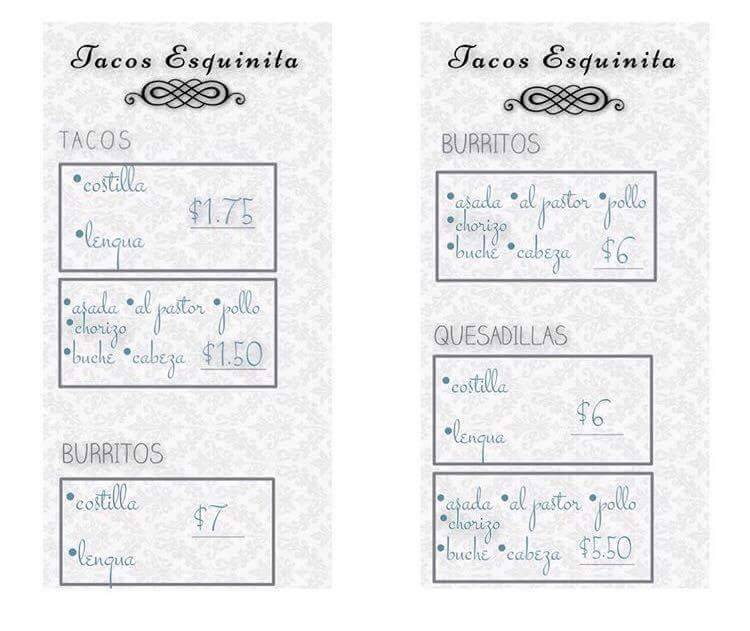 Tacos Esquinita
TACOS
•costilla
$1.75
•lengua
•asada •al pastor •pollo
•chorizo
•buche •cabeza $1.50
BURRITOS
•costilla
$7
•lengua
Tacos Esquinita
BURRITOS
•asada •al pastor •pollo
•chorizo
•buche •cabeza $6
QUESADILLAS
•costilla
$6
•lengua
•asada •al pastor •pollo
•chorizo
•buche •cabeza $5.50